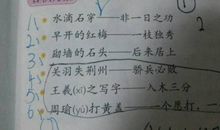 1、水滴石穿——非一日之功
2、早开的红梅——一枝独秀
3、砌墙的石头——后来居上
4、关羽失荆州——骄兵必败
5、王羲(xī)之写字——入木三分
6、周瑜(yú)打黄盖——一个愿打，一
1
2